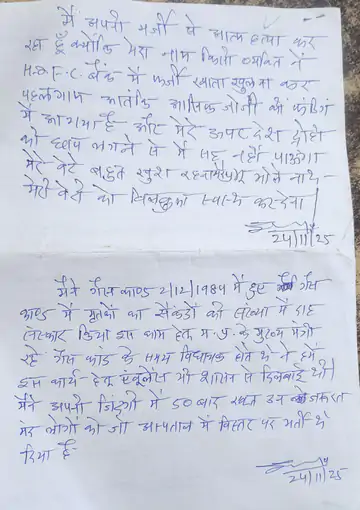 मैं अपनी मर्जी से आत्म हत्या कर
रहा हूँ क्योंकि मेरा नाम किसी व्यक्ति ने
H.D.F.C. बैंक में फर्जी खाता खुलवा कर
पहलगाम आतंकि आसिफ नामी के फंडिंग
में आगया है और मेरे ऊपर देश द्रोही
का इल्जाम लगने से में सह नहीं पाऊंगा
मेरे बेटे बहुत खुश रहना मेरे भोले नाथ
मेरी बेटी को बिलकुल स्वस्थ कर देना।
24/11/25
मैंने गैस काण्ड 2/12/1984 में हुए गैस
काण्ड में मृतकों का सैंकडों की संख्या में दाह
संस्कार किया इस काम हेतु म.प्र. के मुख्य मंत्री
रहे गैस कांड के समय विधायक होते थे ने हमें
इस कार्य हेतु एंबूलेंस भी शासन से दिलवाई थी।
मैंने अपनी जिंदगी में 50 बार रक्त उन जरूरत
मंद लोगों को जो अस्पताल में बिस्तर पर भर्ती थे
दिया है-
24/11/25